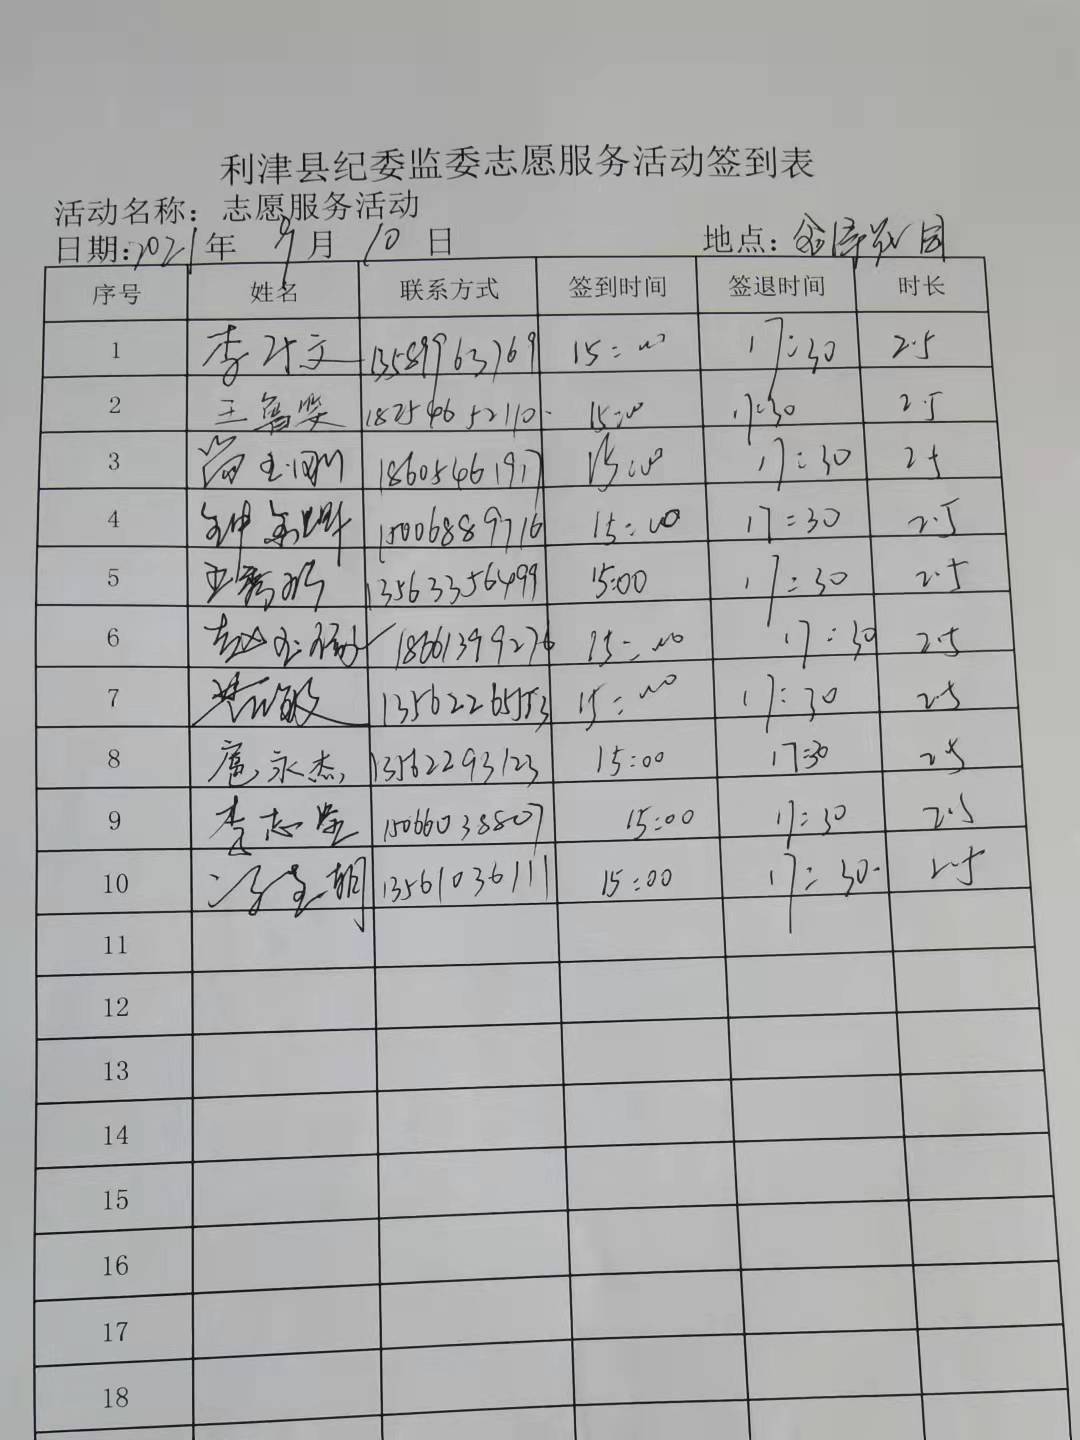 利津县纪委监委志愿服务活动签到表
活动名称：志愿服务活动
日期:2021年 9月 10日 地点：
序号 姓名 联系方式 签到时间 签退时间 时长
1 李 文 13589963769 15:00 17:30 2.5
2 王鲁雯 18254652110 15:00 17:30 2.5
3 尚玉刚 18605461917 15:00 17:30 2.5
4 15006889716 15:00 17:30 2.5
5 王 13563356499 15:00 17:30 2.5
6 赵玉福 18661399276 15:00 17:30 2.5
7 敏 13562265553 15:00 17:30 2.5
8 扈永杰 13562293123 15:00 17:30 2.5
9 李志坚 15066038807 15:00 17:30 2.5
10 冯 朝 13561036111 15:00 17:30 2.5
11
12
13
14
15
16
17
18